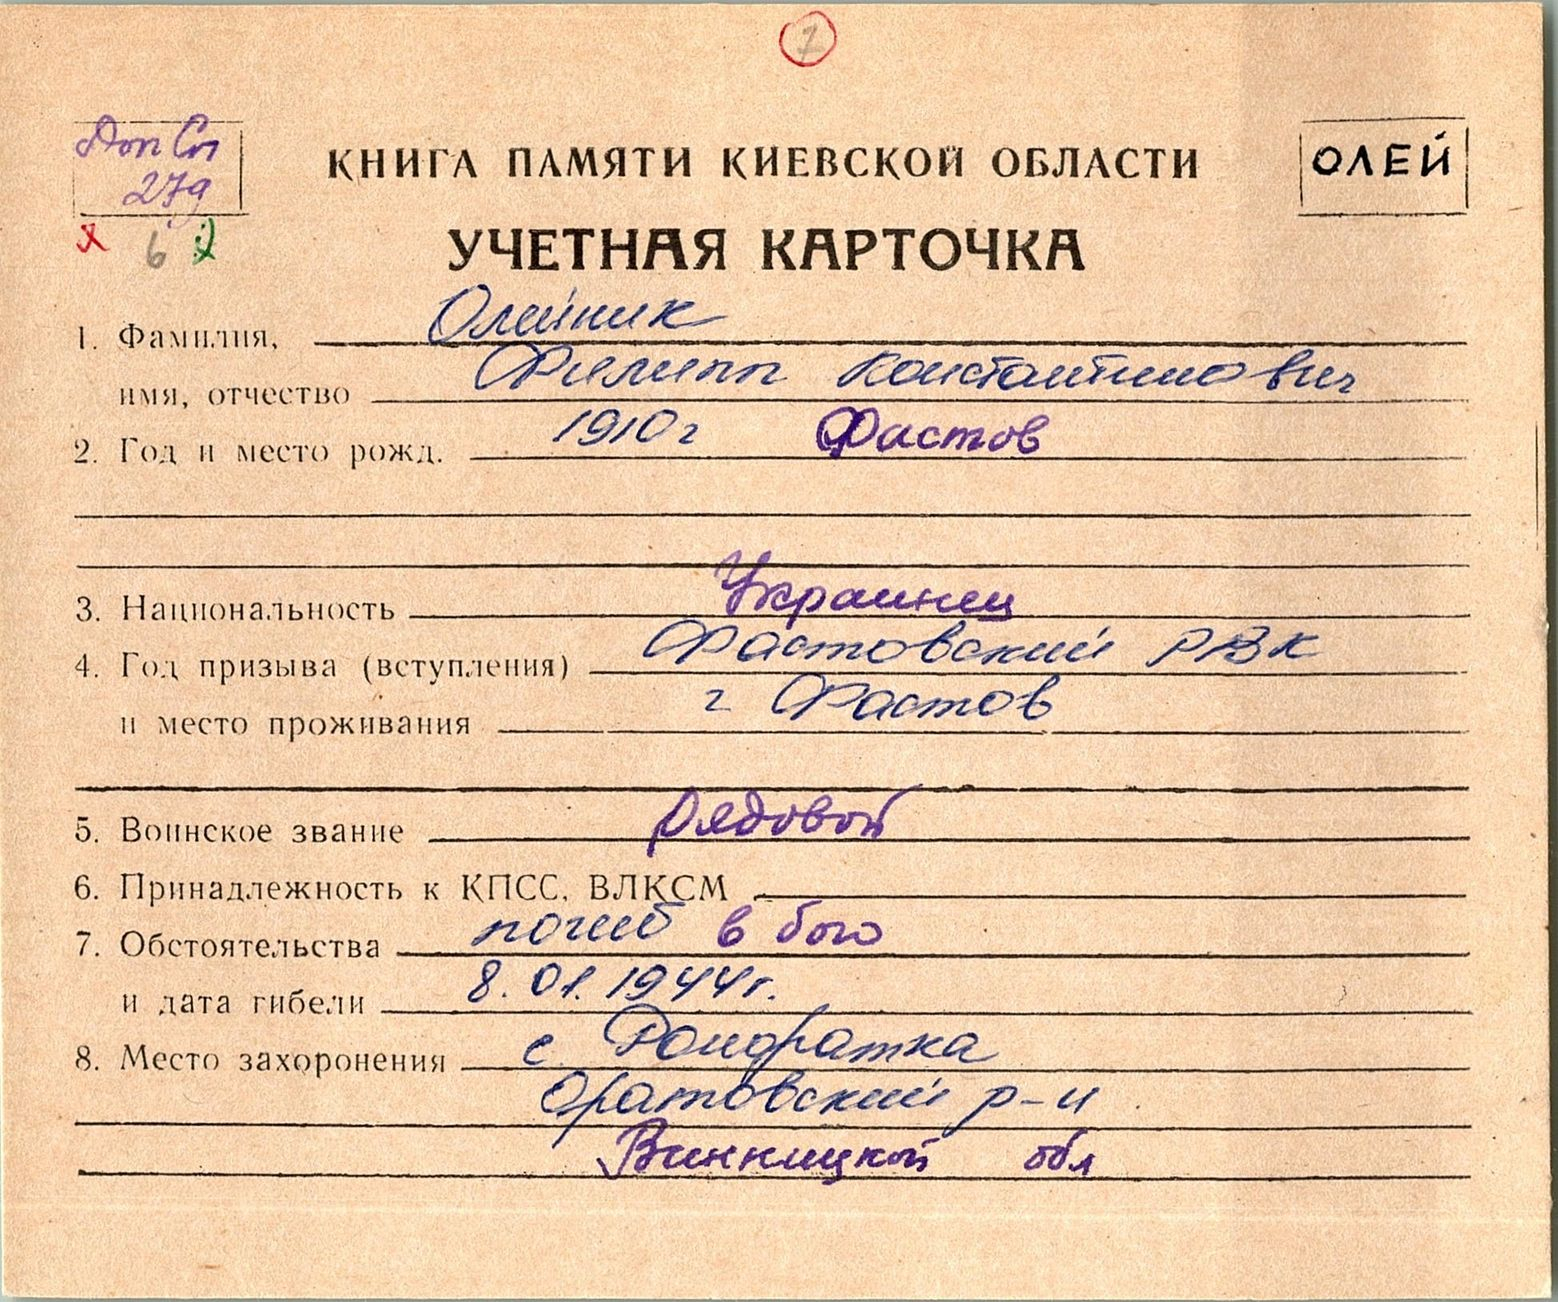 1
Доп Сп
279
6
ОЛЕЙ
КНИГА ПАМЯТИ КИЕВСКОЙ ОБЛАСТИ
УЧЕТНАЯ КАРТОЧКА
1. Фамилия, Олейник
имя, отчество Филипп Константинович
2. Год и место рожд. 1910 г Фастов
3. Национальность Украинец
4. Год призыва (вступления) Фастовский РВК
и место проживания г Фастов
5. Воинское звание рядовой
6. Принадлежность к КПСС, ВЛКСМ
7. Обстоятельства погиб в бою
и дата гибели 8.01.1944г.
8. Место захоронения с
Оратовский р-н
Винницкой обл